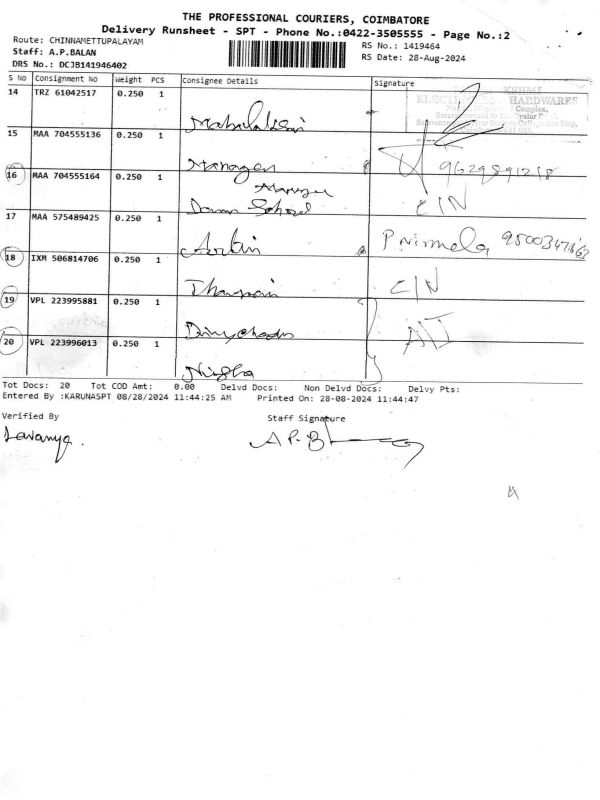 THE PROFESSIONAL COURIERS, COIMBATORE
Delivery Runsheet - SPT - Phone No.:0422-3505555 - Page No.:2
Route: CHINNAMETTUPALAYAM
RS No.: 1419464
Staff: A.P.BALAN
RS Date: 28-Aug-2024
DRS No.: DCJB141946402
S No Consignment No Weight PCS Consignee Details Signature
14 TRZ 61042517 0.250 1
ELECTRICALS HARDWARES
Complex,
15 MAA 704555136 0.250 1
Manager 9629891218
16 MAA 704555164 0.250 1
Manager
C/N
17 MAA 575489425 0.250 1
P Nirmela
18 IXM 506814706 0.250 1
C/N
19 VPL 223995881 0.250 1
20 VPL 223996013 0.250 1
Tot Docs: 20 Tot COD Amt: 0.00 Delvd Docs: Non Delvd Docs: Delvy Pts:
Entered By :KARUNASPT 08/28/2024 11:44:25 AM Printed On: 28-08-2024 11:44:47
Verified By Staff Signature
Lavanya. A P. B